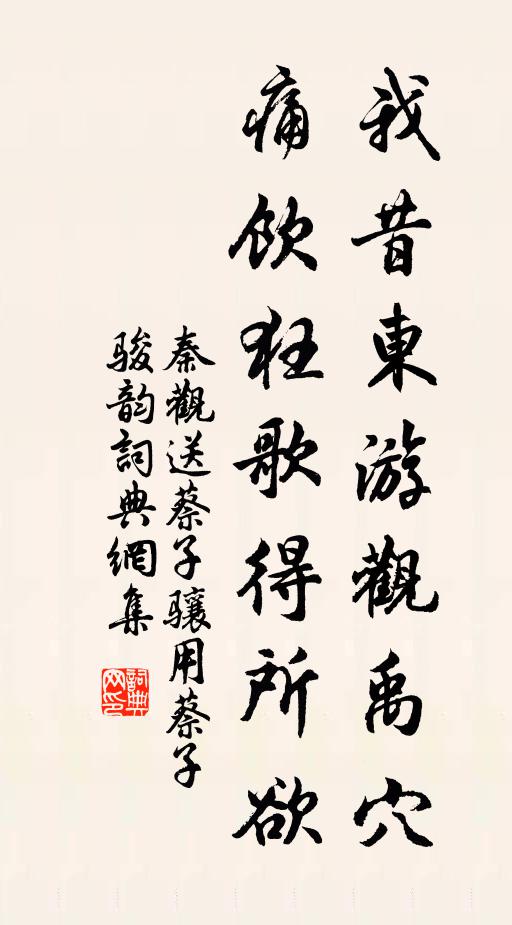 我昔東游觀禹穴
痛飲狂歌得所欲
秦觀送蔡子驤用蔡子
駿韵詞典網集
詞典网印